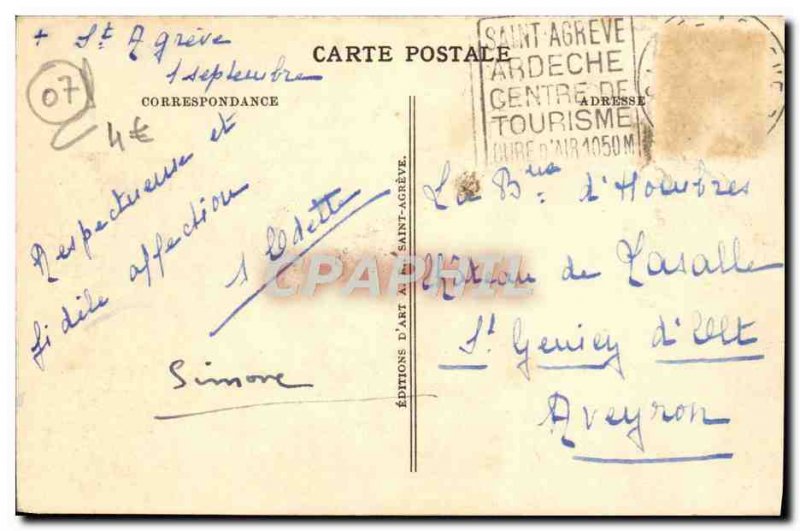 + St Agrève
1 septembre
CARTE POSTALE
07
4€
CORRESPONDANCE
ADRESSE
SAINT-AGREVE
ARDECHE
CENTRE DE
TOURISME
CURE D'AIR 1050M
Respectueuse et
fidèle affection
Odette
Simone
ÉDITIONS D'ART SAINT-AGRÈVE.
CPAPHIL
La Bnne d'Hombres
Château de Lasalle
St Geniez d'Olt
Aveyron